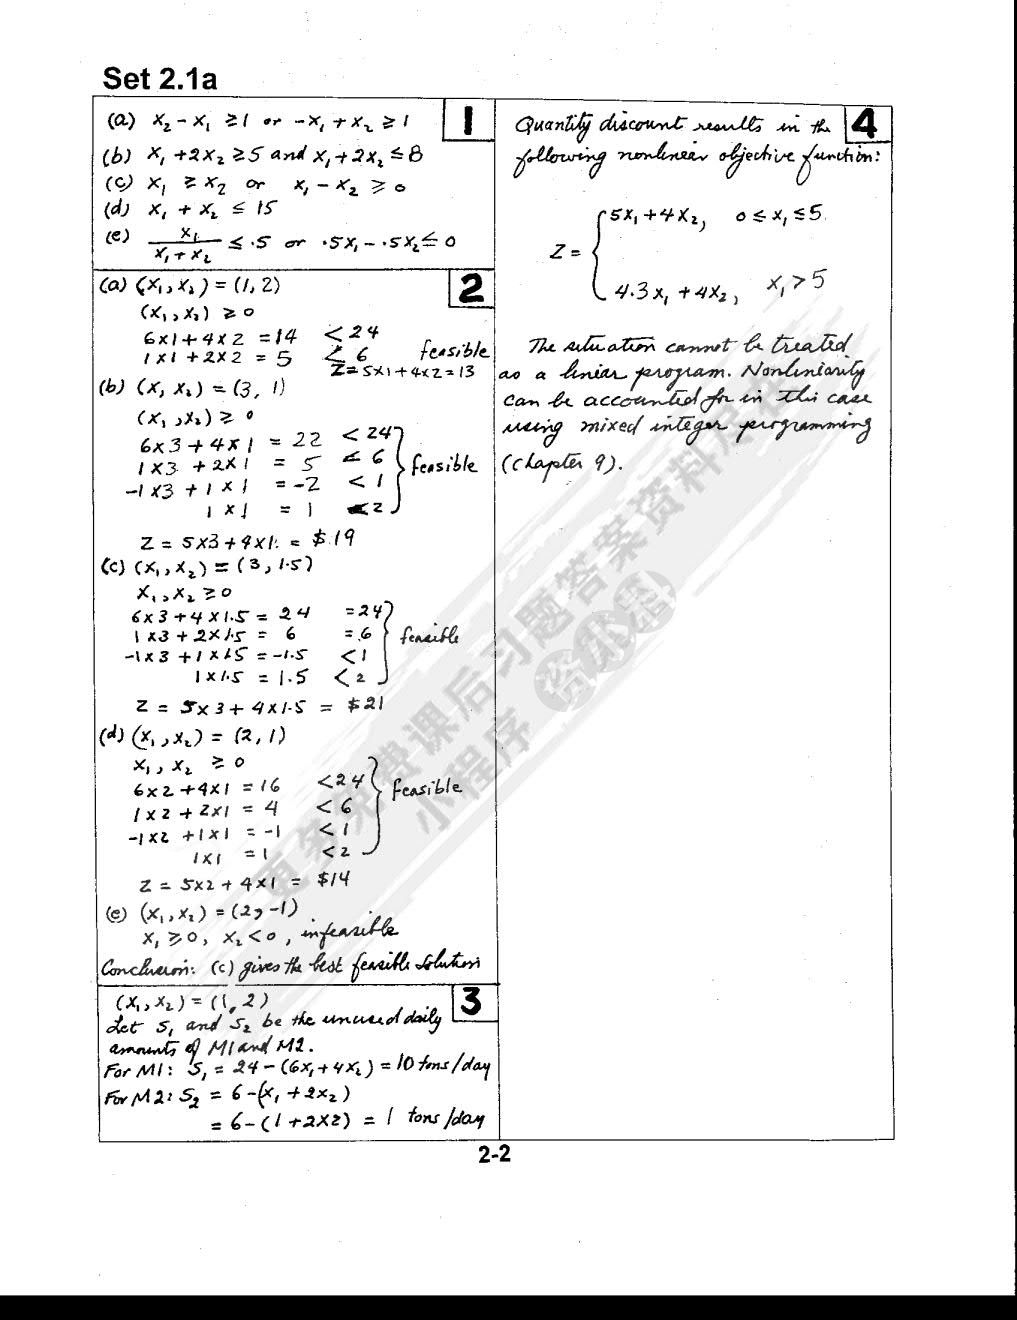 Set 2.1a
1
(a) x₂ - x₁ ≥ 1 or -x₁ + x₂ ≥ 1
(b) x₁ + 2x₂ ≥ 5 and x₁ + 2x₂ ≤ 8
(c) x₁ ≥ x₂ or x₁ - x₂ ≥ 0
(d) x₁ + x₂ ≤ 15
(e) x₁ / (x₁ + x₂) ≤ .5 or .5x₁ - .5x₂ ≤ 0
2
(a) (x₁, x₂) = (1, 2)
(x₁, x₂) ≥ 0
6x1 + 4x2 = 14 < 24
1x1 + 2x2 = 5 < 6 feasible
Z = 5x1 + 4x2 = 13
(b) (x₁ x₂) = (3, 1)
(x₁, x₂) ≥ 0
6x3 + 4x1 = 22 < 24
1x3 + 2x1 = 5 < 6 feasible
-1x3 + 1x1 = -2 < 1
1x1 = 1 < 2
Z = 5x3 + 4x1 = $19
(c) (x₁, x₂) = (3, 1.5)
x₁, x₂ ≥ 0
6x3 + 4x1.5 = 24 = 24
1x3 + 2x1.5 = 6 = 6 feasible
-1x3 + 1x1.5 = -1.5 < 1
1x1.5 = 1.5 < 2
Z = 5x3 + 4x1.5 = $21
(d) (x₁, x₂) = (2, 1)
x₁, x₂ ≥ 0
6x2 + 4x1 = 16 < 24 feasible
1x2 + 2x1 = 4 < 6
-1x2 + 1x1 = -1 < 1
1x1 = 1 < 2
Z = 5x2 + 4x1 = $14
(e) (x₁, x₂) = (2, -1)
x₁ ≥ 0, x₂ < 0, infeasible
Conclusion: (c) gives the best feasible solution
3
(x₁, x₂) = (1, 2)
Let S₁ and S₂ be the unused daily
amounts of M1 and M2.
For M1: S₁ = 24 - (6x₁ + 4x₂) = 10 tons/day
For M2: S₂ = 6 - (x₁ + 2x₂)
= 6 - (1 + 2x2) = 1 tons/day
4
Quantity discount results in the
following nonlinear objective function:
5x₁ + 4x₂, 0 ≤ x₁ ≤ 5
Z =
4.3x₁ + 4x₂, x₁ > 5
The situation cannot be treated
as a linear program. Nonlinearity
can be accounted for in this case
using mixed integer programming
(chapter 9).
更多免费课后习题答案资料尽在
小程序 资小猫
2-2